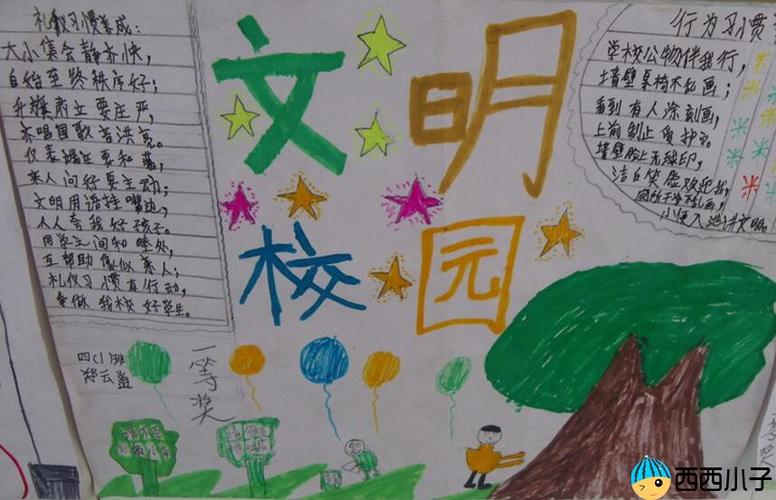 礼仪习惯养成:
大小集会静齐快,
自始至终秩序好;
升旗肃立要庄严,
齐唱国歌音洪亮。
仪表端庄要和蔼,
来人问好要主动;
文明用语挂嘴边,
人人夸我好孩子。
同学之间和睦处,
互帮助像似亲人;
礼仪习惯有行动,
争做我校好学生。
文明
校园
行为习惯
学校公物伴我行,
土墙壁桌椅不乱画;
看到有人涂刻画,
上前制止爱护它。
墙壁脸上无绿印,
洁白笑靥欢迎我,
四(1)班
一等奖
西西小子